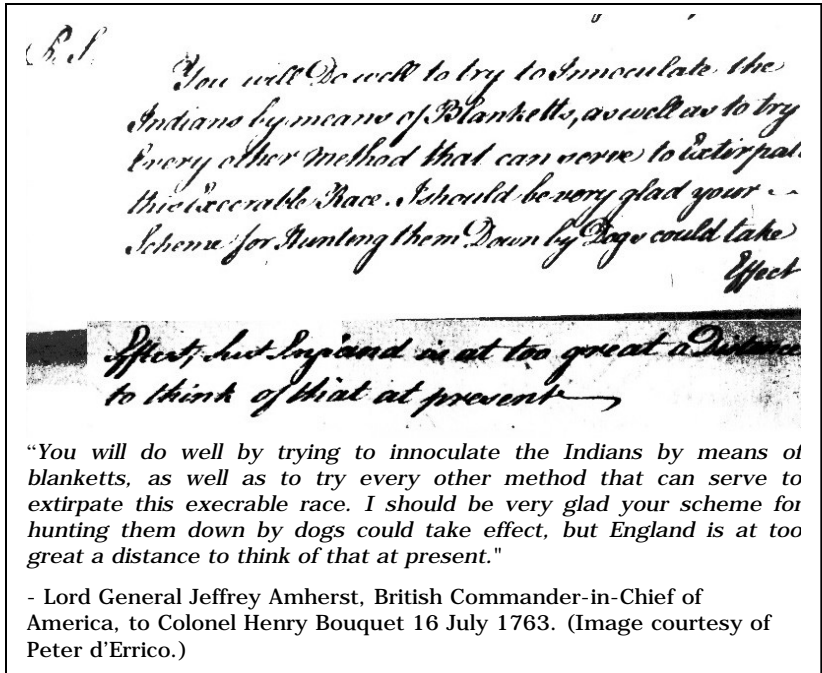 P.S.
You will Do well to try to Innoculate the
Indians by means of Blanketts, as well as to try
Every other method that can serve to Extirpate
this Execrable Race. I should be very glad your
Scheme for Hunting them Down by Dogs could take
Effect
Effect, but England is at too great a Distance
to think of that at present
“You will do well by trying to innoculate the Indians by means of
blanketts, as well as to try every other method that can serve to
extirpate this execrable race. I should be very glad your scheme for
hunting them down by dogs could take effect, but England is at too
great a distance to think of that at present."
- Lord General Jeffrey Amherst, British Commander-in-Chief of
America, to Colonel Henry Bouquet 16 July 1763. (Image courtesy of
Peter d’Errico.)